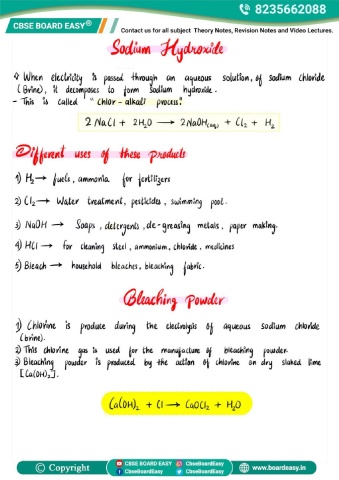 8235662088
CBSE BOARD EASY®
Contact us for all subject Theory Notes, Revision Notes and Video Lectures.
Sodium Hydroxide
When electricity is passed through an aqueous solution, of sodium chloride
(Brine), it decomposes to form sodium hydroxide.
- This is called "chlor-alkali process".
2 NaCl + 2H₂O → 2 NaOH(aq) + Cl₂ + H₂
Different uses of these products
1) H₂ → fuels, ammonia for fertilizers
2) Cl₂ → Water treatment, pesticides, swimming pool.
3) NaOH → Soaps, detergents, de-greasing metals, paper making.
4) HCl → for cleaning steel, ammonium, chloride, medicines
5) Bleach → household bleaches, bleaching fabric.
Bleaching Powder
1) Chlorine is produce during the electrolysis of aqueous sodium chloride
(brine).
2) This chlorine gas is used for the manufacture of bleaching powder.
3) Bleaching powder is produced by the action of chlorine on dry slaked lime
[Ca(OH)₂].
Ca(OH)₂ + Cl → CaOCl₂ + H₂O
© Copyright
CBSE BOARD EASY CBseBoardEasy
CBseBoardEasy CBseBoardEasy
www.boardeasy.in